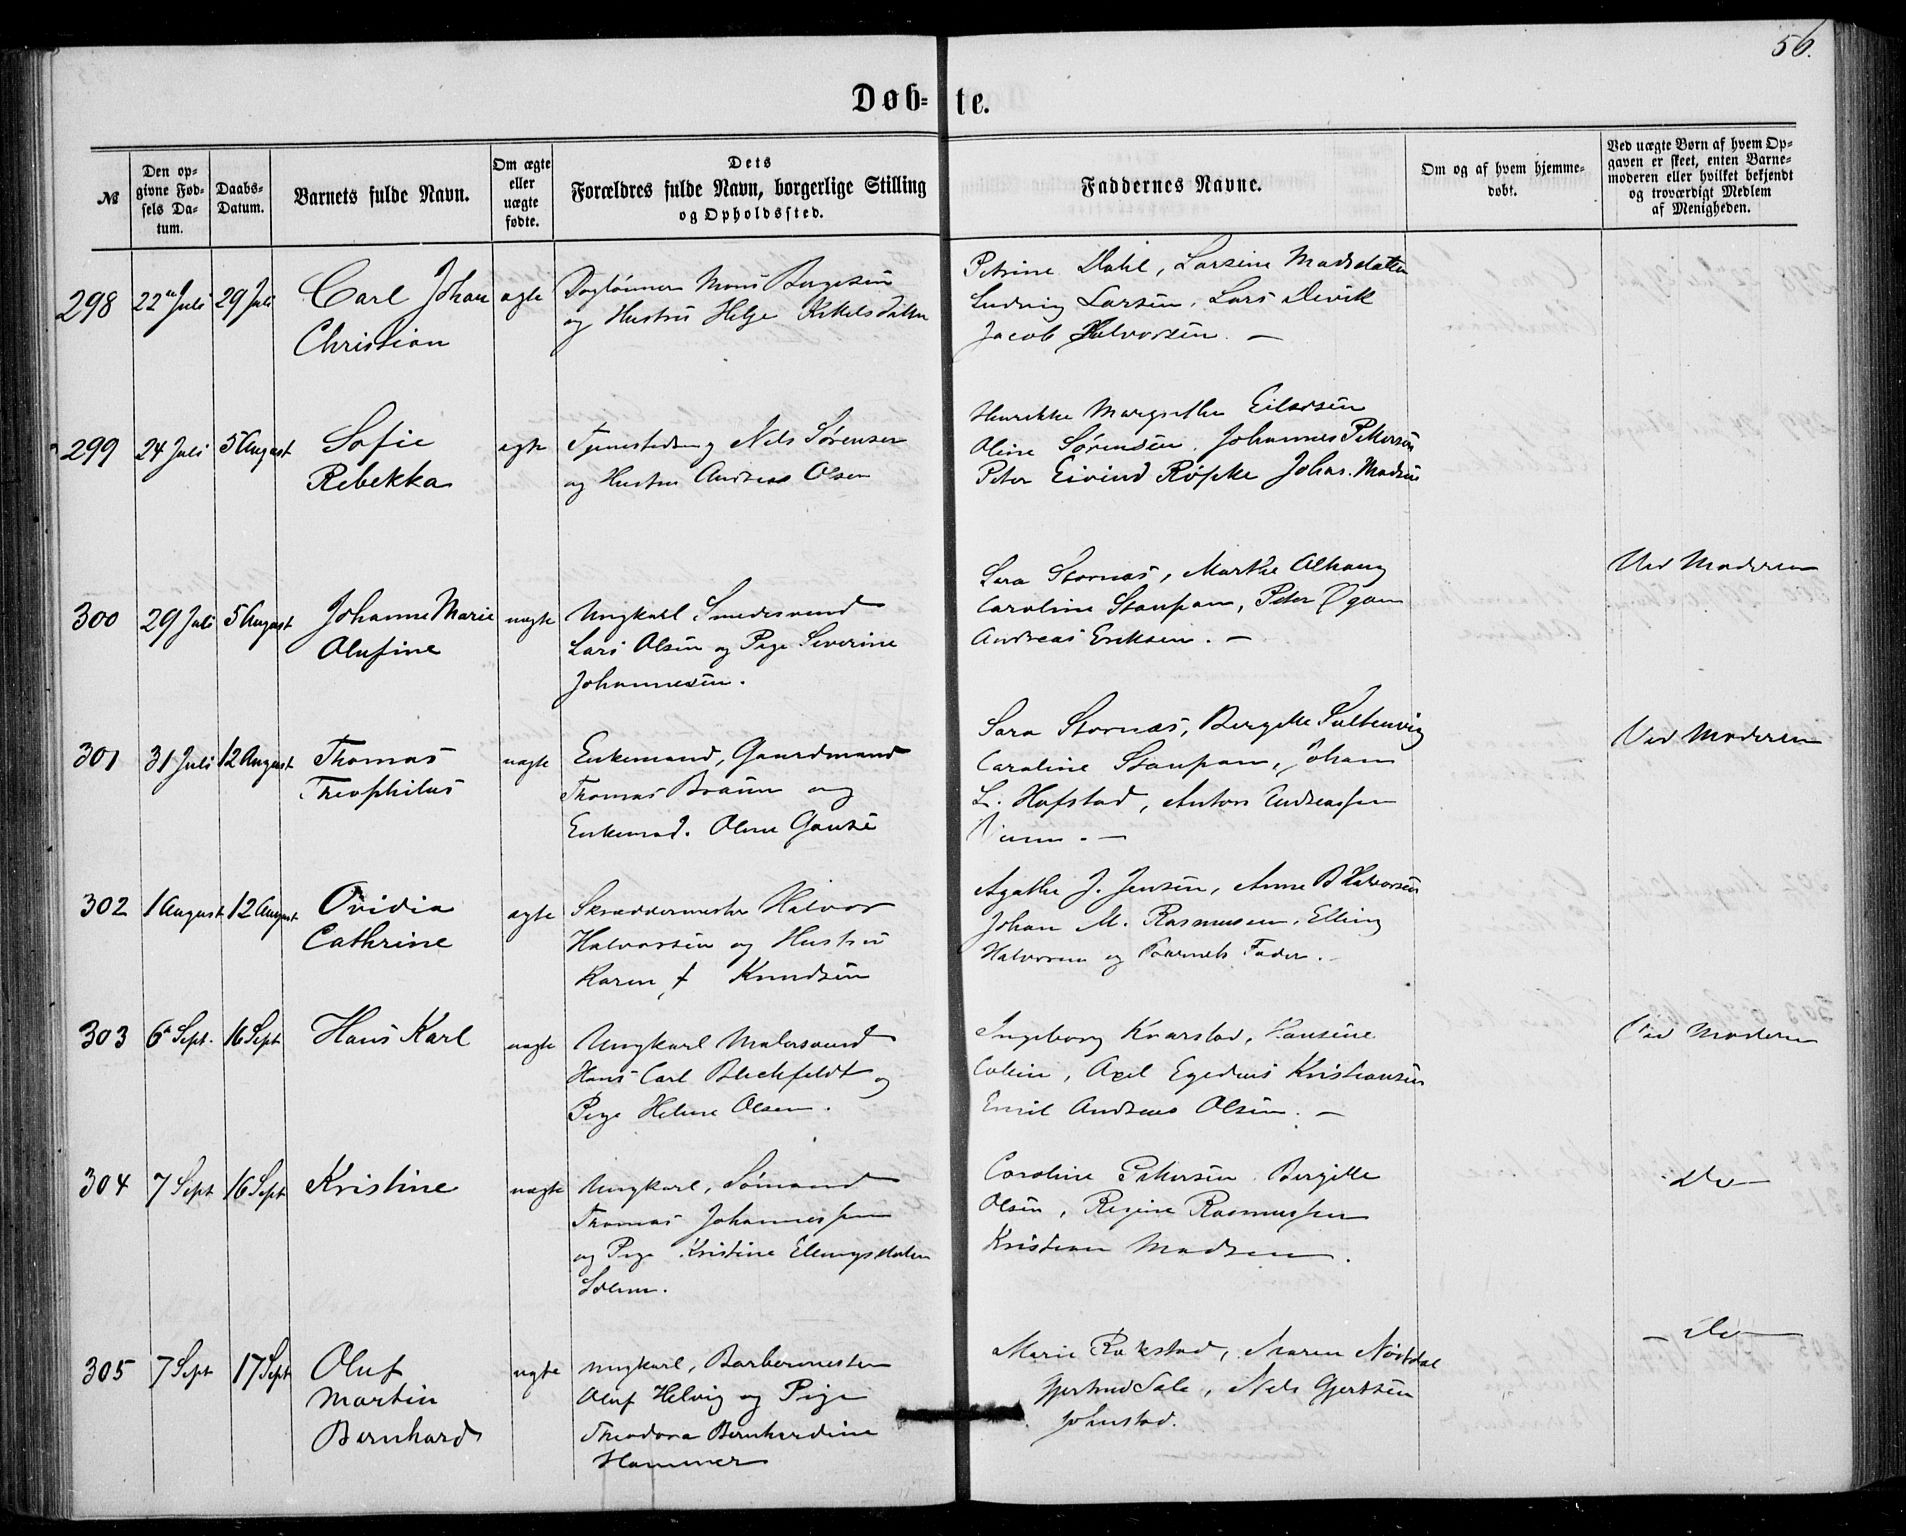 56.
Døb- te.
№
Den op-
givne Fød-
sels Da-
tum.
Daabs-
Datum.
Barnets fulde Navn.
Om ægte
eller
uægte
fødte.
Dets
Forældres fulde Navn, borgerlige Stilling
og Opholdssted.
Faddernes Navne.
Om og af hvem hjemme-
døbt.
Ved uægte Børn af hvem Op-
gaven er skeet, enten Barne-
moderen eller hvilket bekjendt
og troværdigt Medlem
af Menigheden.
298
22 Juli
29 Juli
Carl Johan
Christian
ægte
Dagleinner Mons Bergesen
og Hustru Helje
Petrine Dahl, Larsine Madsdatter
Ludvig Larsen, Lars Devik
Jacob Halvorsen. —
299
24 Juli
5 August
Sofie
Rebekka
ægte
Nels Sørensen
og Hustru Andrea Olsen
Henrikke Margrethe Eilersen
Oline Sørensen, Johannes Petersen
Peter Eivind Röpcke Johas. Madsen
300
29 Juli
5 August
Johanne Marie
Olufine
uægte
Ungkarl Smedesvend
Lars Olsen og Pige Severine
Johannesen.
Sara Stornæs, Marthe
Caroline Staupan, Peter
Andreas Eriksen. —
Ved Moderen
301
31 Juli
12 August
Thomas
Theophilus
uægte
Enkemand, Gaardmand
Thomas Braun og
Enkemad. Oline
Sara Stornæs, Bergitte
Caroline Staupan, Johan
L. Hofstad, Anton Andreassen
Ved Moderen
302
1 August
12 August
Ovidia
Cathrine
ægte
Skræddermester Halvor
Halvorsen og Hustru
Karen f Knudsen
Agathe J. Jensen, Anne B Halvorsen
Johan M. Rasmussen, Elling
Halvorsen og Barnets Fader. —
303
6 Sept.
16 Sept
Hans Karl
uægte
Ungkarl Malersvend
Hans Carl Blechfeldt og
Pige Helene Olsen.
Ingeborg Knarstad, Hansine
Colin, Axel Egedius Kristiansen
Emil Andreas Olsen. —
Ved Moderen
304
7 Sept
16 Sept
Kristine
uægte
Ungkarl, Sømand
Thomas Johannessen
og Pige Kristine
Caroline Petersen Bergitte
Olsen, Regine Rasmussen
Kristian Madsen.
Do
305
7 Sept
17 Sept
Oluf
Martin
Bernhard
uægte
Ungkarl, Barbermester
Oluf Helvig og Pige
Theodora Bernhardine
Hammer
Marie Rakstad, Maren Nøstdal
Gjertrud Sale, Nels Gjertsen
Johnstad.
— Do —